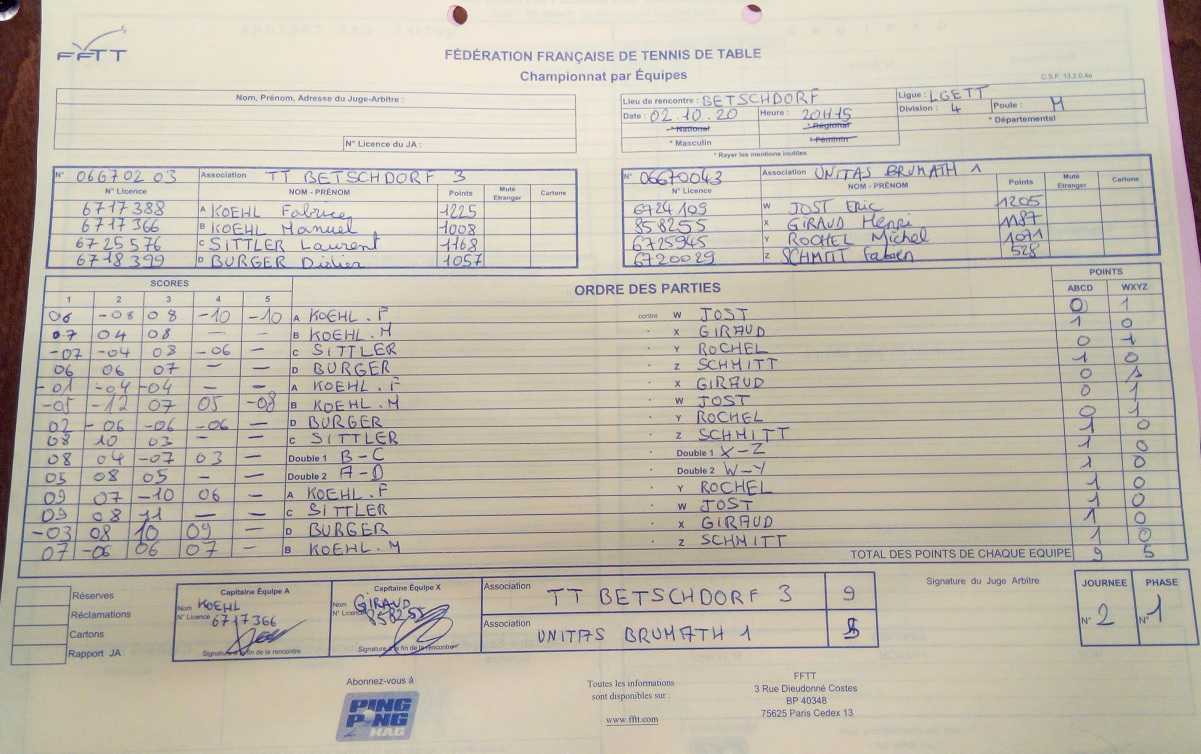 FFTT
FÉDÉRATION FRANÇAISE DE TENNIS DE TABLE
Championnat par Équipes
C.S.F. 13.2.0.4a
Nom, Prénom, Adresse du Juge-Arbitre :
N° Licence du JA :
Lieu de rencontre : BETSCHDORF Ligue : LGETT
Date : 02.10.20 Heure : 20H15 Division : 4 Poule : M
* National * Régional * Départemental
* Masculin * Féminin
* Rayer les mentions inutiles
N° 06670203 Association TT BETSCHDORF 3
N° Licence NOM - PRÉNOM Points Muté Etranger Cartons
6717388 A KOEHL Fabrice 1225
6717366 B KOEHL Manuel 1008
6725576 C SITTLER Laurent 1168
6718399 D BURGER Didier 1057
N° 06670043 Association UNITAS BRUMATH 1
N° Licence NOM - PRÉNOM Points Muté Etranger Cartons
6724109 W JOST Eric 1205
858255 X GIRAUD Henri 1187
6725945 Y ROCHEL Michel 1071
6720029 Z SCHMITT Fabien 528
SCORES ORDRE DES PARTIES POINTS
1 2 3 4 5 ABCD WXYZ
06 -08 08 -10 -10 A KOEHL.F contre W JOST 0 1
07 04 08 - - B KOEHL.M " X GIRAUD 1 0
-07 -04 08 -06 - C SITTLER " Y ROCHEL 0 1
06 06 07 - - D BURGER " Z SCHMITT 1 0
-01 -04 -04 - - A KOEHL.F " X GIRAUD 0 1
-05 -12 07 05 -08 B KOEHL.M " W JOST 0 1
02 -06 -06 -06 - D BURGER " Y ROCHEL 0 1
08 10 03 - - C SITTLER " Z SCHMITT 1 0
08 04 -07 03 - Double 1 B-C " Double 1 X-Z 1 0
05 08 05 - - Double 2 A-D " Double 2 W-Y 1 0
09 07 -10 06 - A KOEHL.F " Y ROCHEL 1 0
09 08 11 - - C SITTLER " W JOST 1 0
-03 08 10 09 - D BURGER " X GIRAUD 1 0
07 -06 06 07 - B KOEHL.M " Z SCHMITT 1 0
TOTAL DES POINTS DE CHAQUE EQUIPE 9 5
Réserves
Réclamations
Cartons
Rapport JA
Capitaine Équipe A
Nom KOEHL
N° Licence 6717366
Signature à la fin de la rencontre
Capitaine Équipe X
Nom GIRAUD
N° Licence 858255
Signature à la fin de la rencontre
Association TT BETSCHDORF 3 9
Association UNITAS BRUMATH 1 5
Signature du Juge Arbitre
JOURNEE N° 2
PHASE N° 1
Abonnez-vous à
PING PONG MAG
Toutes les informations
sont disponibles sur :
www.fftt.com
FFTT
3 Rue Dieudonné Costes
BP 40348
75625 Paris Cedex 13